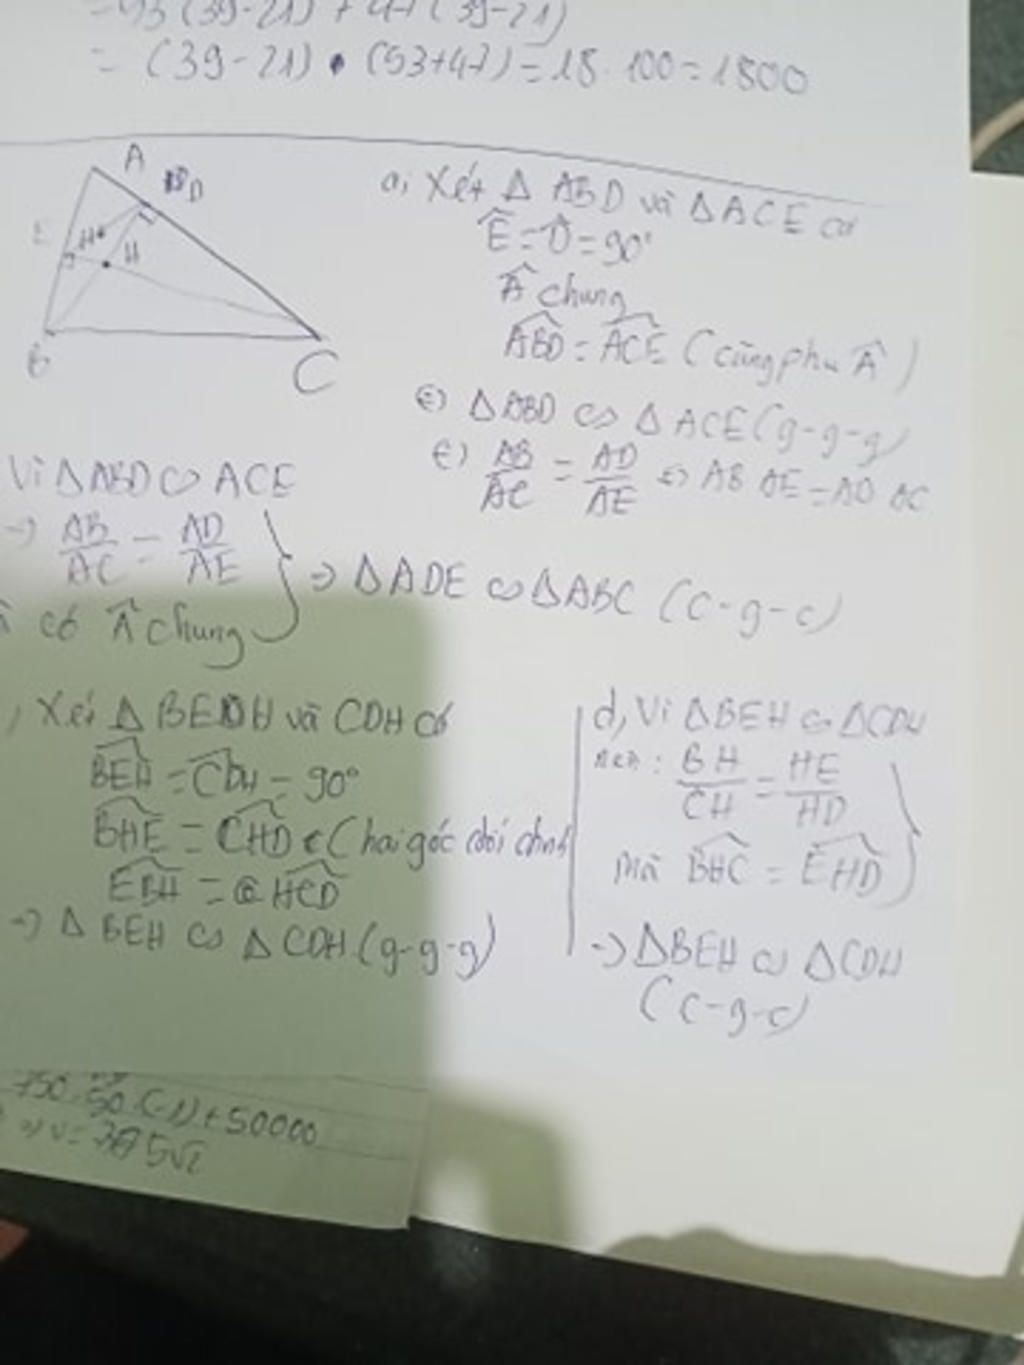 =53(39-21)+47(39-21)
= (39-21) • (53+47)=18.100=1800
A
D
E
H
H
B
C
a, Xét Δ ABD và ΔACE có
Ê=D̂=90°
Â chung
ABD̂ = ACÊ (cùng phụ Â)
Δ ABD ∽ Δ ACE(g-g-g)
AB/AC = AD/AE ⇔ AB AE = AD AC
Vì ΔABD ∽ ACE
→ AB/AC = AD/AE
có Â chung
⇒ ΔADE ∽ ΔABC (c-g-c)
, Xét Δ BEH và CDH có
BEĤ = CDĤ = 90°
BHÊ = CHD̂ (hai góc đối đỉnh
EBĤ = HCD̂
→ Δ BEH ∽ Δ CDH (g-g-g)
d, Vì ΔBEH ∽ ΔCDH
BH/CH = HE/HD
mà BHĈ = EHD̂
→ ΔBEH ∽ ΔCDH
(c-g-c)
750.50.(-1)+50000